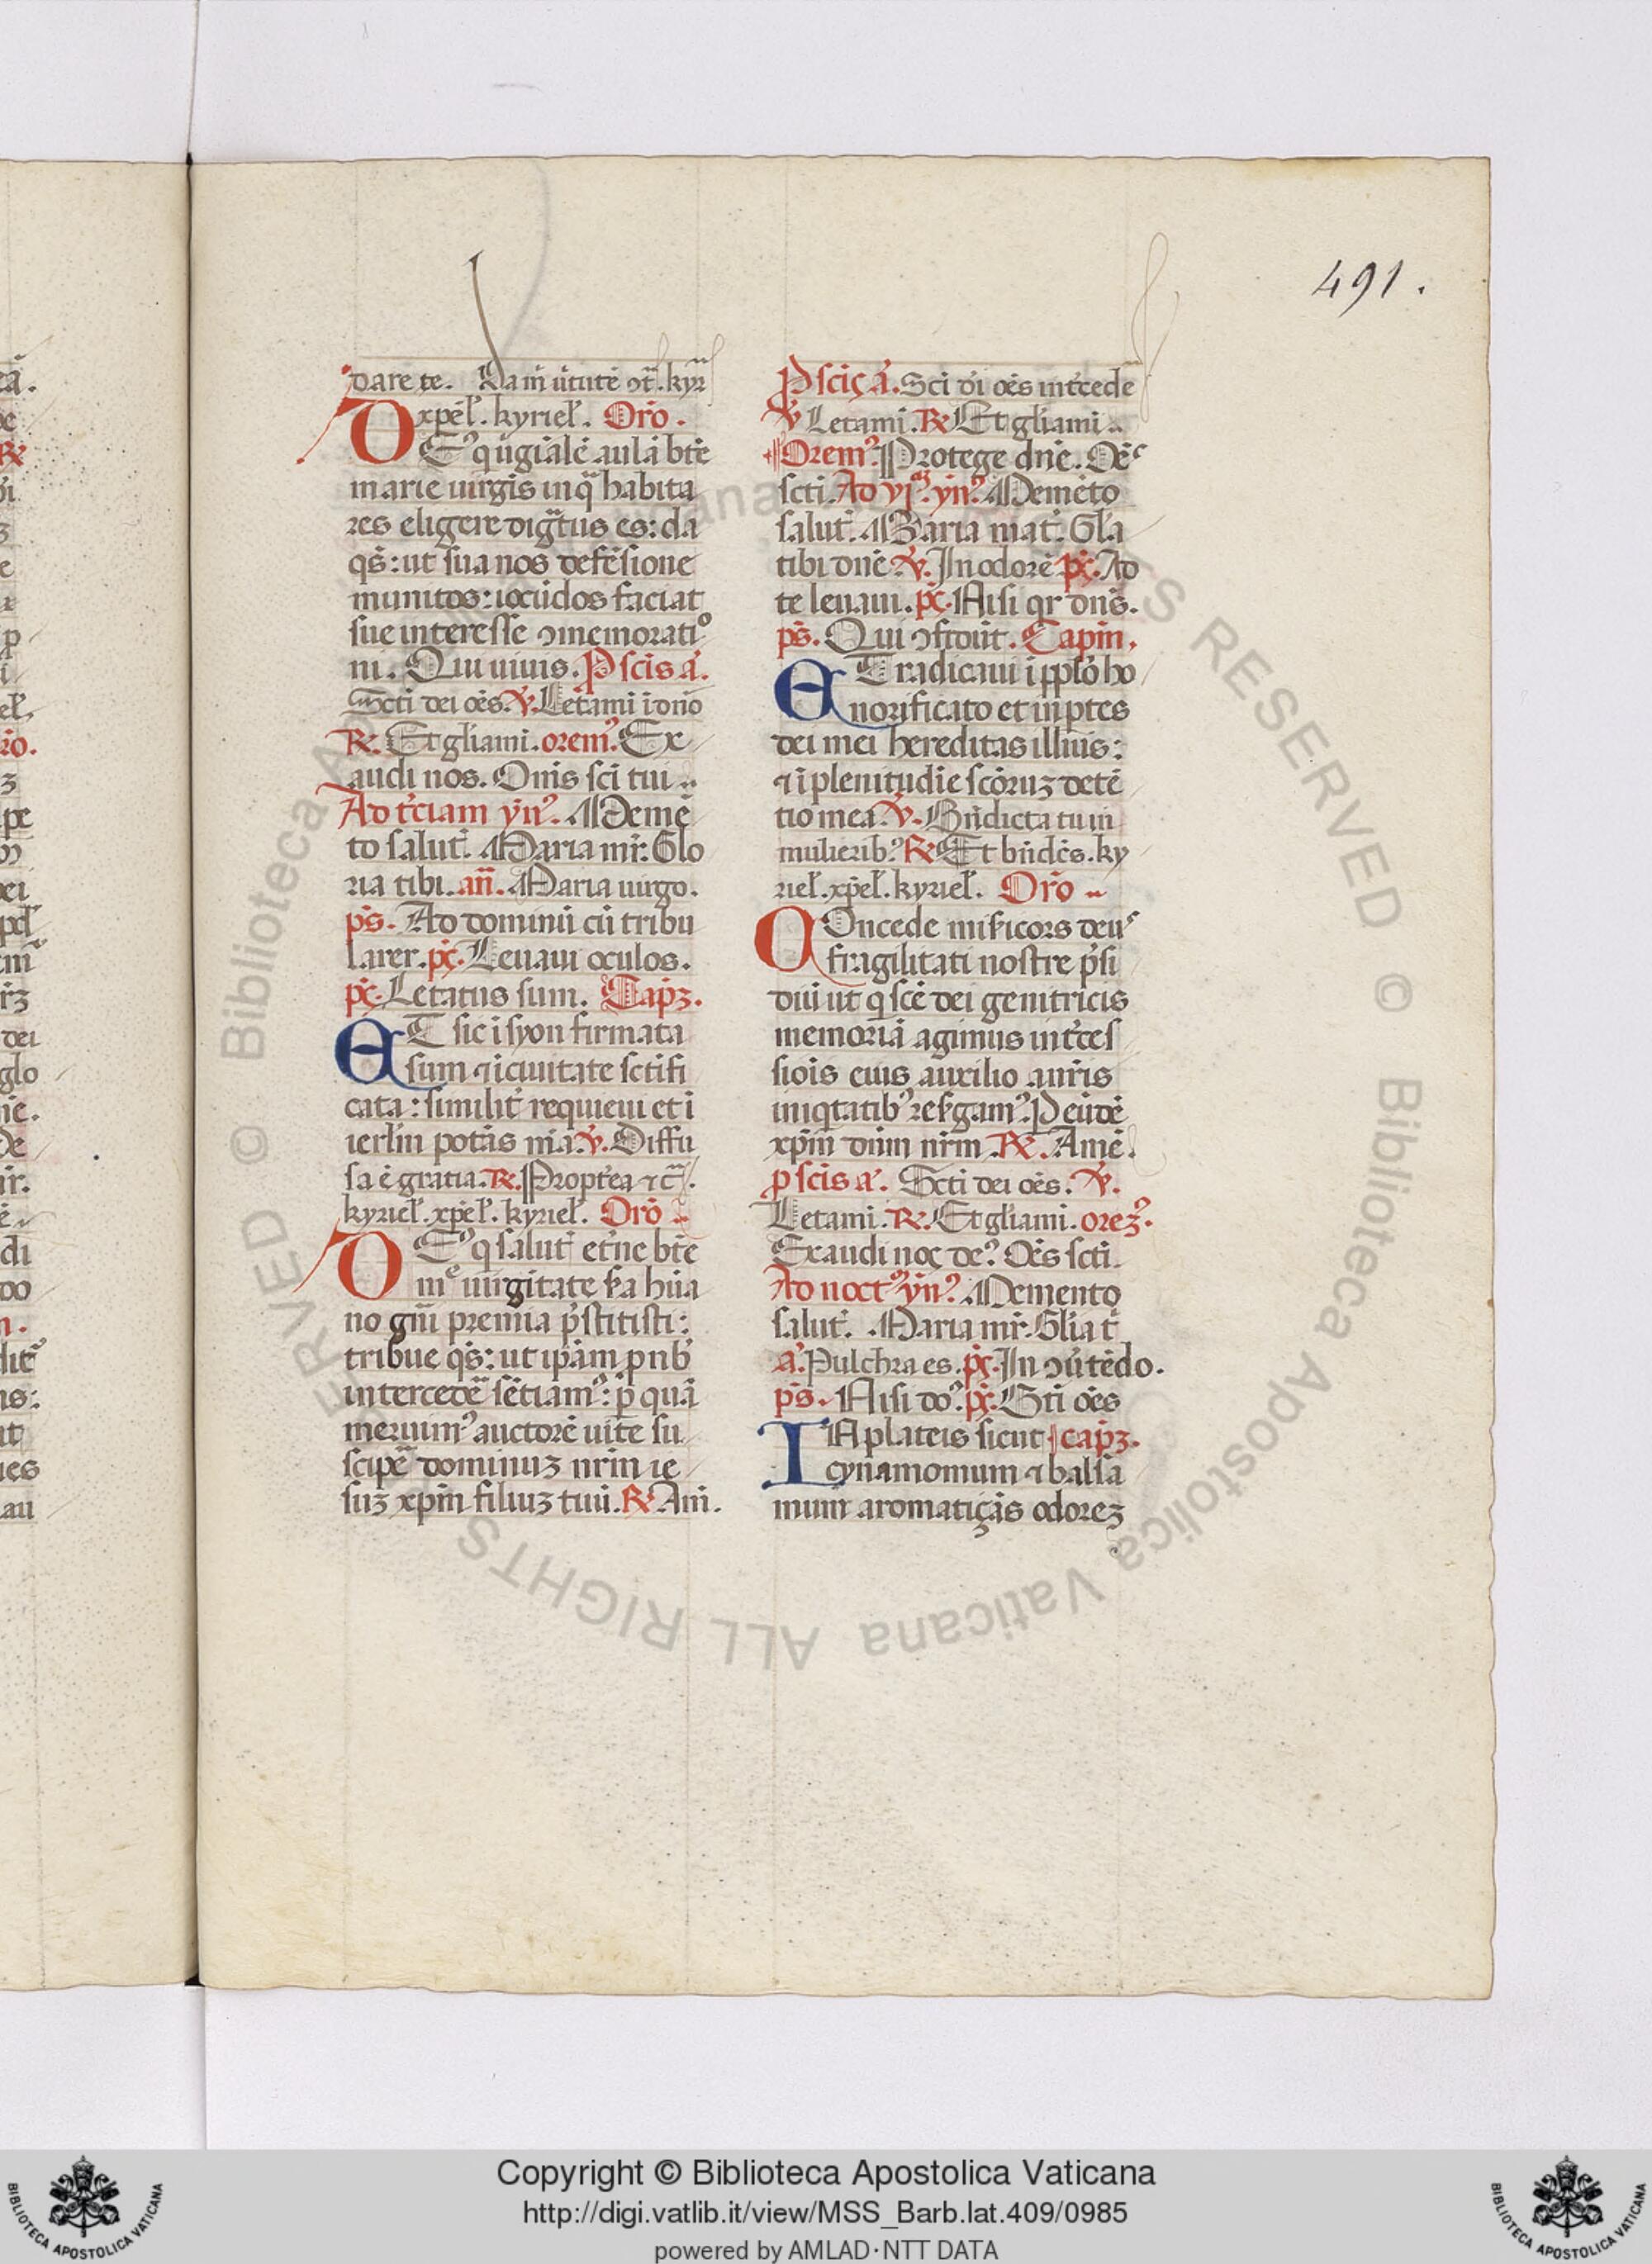 491.
dare te. Da m̄ ūtutē ꝯt̄. kyr̄
xp̄el̄. kyriel̄. Orō.
DEꝰ q ūgīalē aulā btē
marie uirgis in qᷓ habita
res eligere digᷓtus es: da
qs̄: ut sua nos defēsione
munitos: iocūdos faciat
sue interesse ꝯmemoratiº
ni. Qui uiuis. P scis ā.
Scti dei oēs. ℣. Letami ī dnō
℟. Et gliami. oremꝰ. Ex
audi nos. Om̄s sci tui..
Ad t̄ciam yn̄ꝰ. Memē
to salut̄. Maria mr̄. Glo
ria tibi. an̄. Maria uirgo.
ps̄. Ad dominū cū tribu
larer. pꝫ. Leuaui oculos.
pꝫ. Letatus sum. Capꝫ.
ET sic ī syon firmata
sum ⁊ ī ciuitate sctifi
cata: similit̄ requieui et ī
ierlm̄ potās mā. ℣. Diffu
sa ē gratia. ℟. Propt̄ea ⁊c̄.
kyriel̄. xp̄el̄. kyriel̄. Orō
DEꝰ q salut̄ et̄ne btē
mᵉ uirgitate fc̄a hūa
no gn̄i premia p̄stitisti:
tribue qs̄: ut ipām p nb̄
intercedē sētiamꝰ: p̄ quā
meruimꝰ auctorē uite su
scipē dominuꝫ nr̄m ie
suꝫ xpm̄ filiuꝫ tuū. ℟. Am̄.
P sciꝫ ā. Sci dī oēs int̄cede
℣ Letami. ℟ Et gliami..
Oremꝰ. Protege dnē. Oēˢ
scti. Ad vjᵃᵐ. yn̄ꝰ. Memēto
salut̄. Maria mat̄. Gl̄a
tibi dnē ℣. In odorē pꝫ. Ad
te leuaui. pꝫ. Nisi qr dns̄.
ps̄. Qui ꝯfidūt. Capm̄.
ET radicaui ī pplō ho
norificato et in ptes
dei mei hereditas illius:
⁊ ī plenitudīe scōruꝫ detē
tio mea. ℣. Bn̄dicta tu in
mulieribꝰ. ℟ Et bn̄dc̄s. ky
riel̄. xp̄el̄. kyriel̄. Orō
COncede mīsicors deuˢ
fragilitati nostre p̄si
diū ut q scē dei genitricis
memoriā agimus int̄ces
siōis eius auxilio a nr̄is
iniqtatibꝰ resgamꝰ. P eūdē
xpm̄ dnm̄ nrm̄ ℟. Amē.
P scis ā. Scti dei oēs. ℣.
Letami. ℟. Et gliami. oreꝫ.
Exaudi noꝫ deꝰ. Oēs scti.
Ad noctᵃ yn̄ꝰ. Memento
salut̄. Maria mr̄. Glia t̄
ā. Pulchra es. pꝫ. In ꝯūtēdo.
ps̄. Nisi doꝰ. pꝫ. Bti oēs
IN plateis sicut capꝫ.
cynamomum ⁊ balsa
mum aromatiçās odoreꝫ
Copyright © Biblioteca Apostolica Vaticana
http://digi.vatlib.it/view/MSS_Barb.lat.409/0985
powered by AMLAD·NTT DATA
BIBLIOTECA APOSTOLICA VATICANA
BIBLIOTECA APOSTOLICA VATICANA